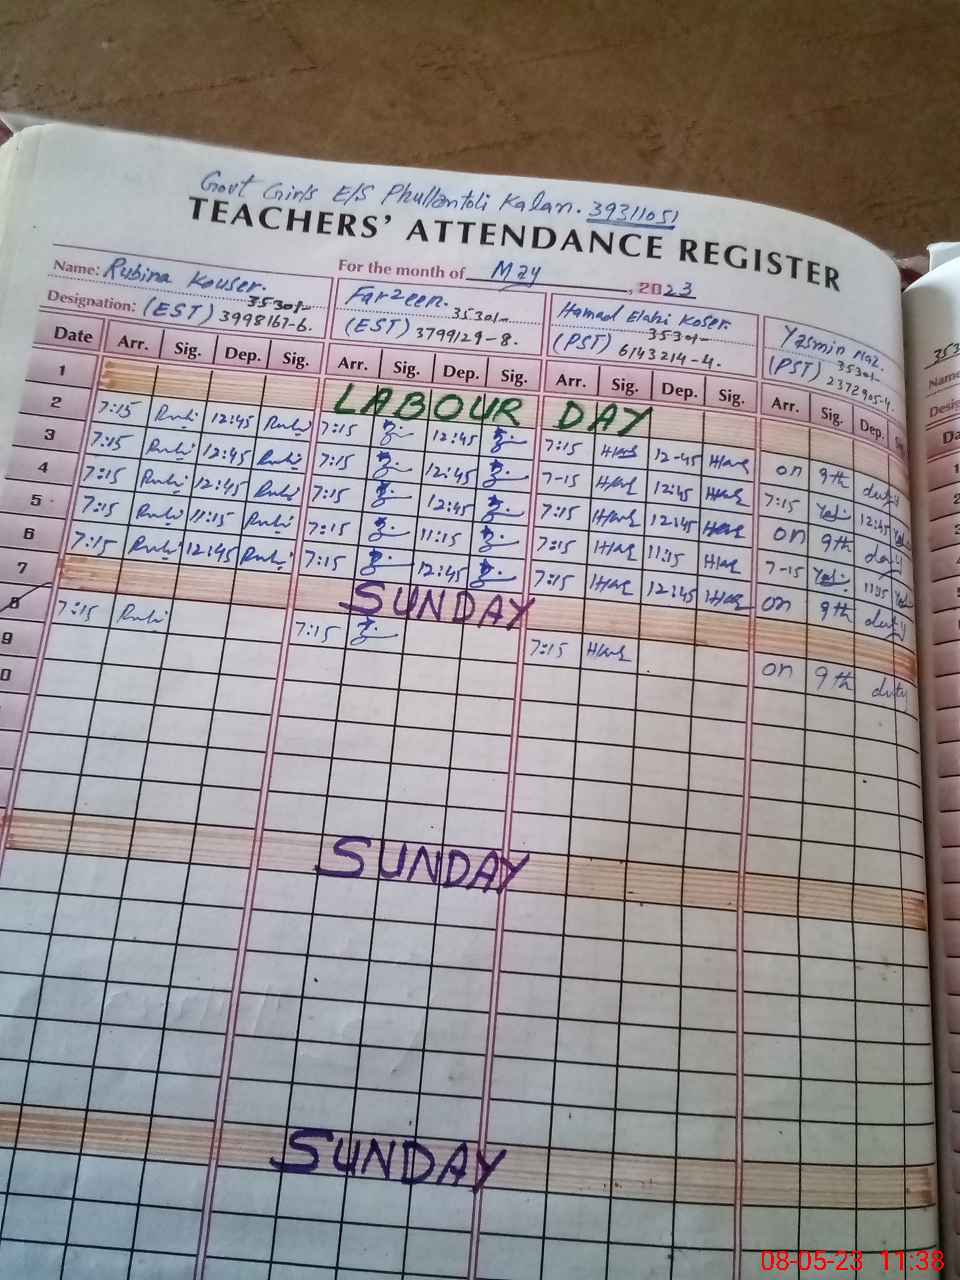 Govt Girls E/S Phullantoli Kalan. 39311051
TEACHERS' ATTENDANCE REGISTER
For the month of May, 2023
Name: Rubina Kouser. Farzeen. Hamad Elahi Koser. Yasmin Naz.
35301- 35301- 35301- 35301-
Designation: (EST) 3998161-6. (EST) 3799129-8. (PST) 6143214-4. (PST) 2372905-4.
Date Arr. Sig. Dep. Sig. Arr. Sig. Dep. Sig. Arr. Sig. Dep. Sig. Arr. Sig. Dep.
1 LABOUR DAY
2 7:15 12:45 7:15 12:45 7:15 12-45 on 9th duty
3 7:15 12:45 7:15 12:45 7-15 12:45 7:15 12:45
4 7:15 12:45 7:15 12:45 7:15 12:45 on 9th duty
5 7:15 11:15 7:15 11:15 7:15 11:15 7-15 11:15
6 7:15 12:45 7:15 12:45 7:15 12:45 on 9th duty
7 SUNDAY
8 7:15 7:15 7:15 on 9th duty
9
0
SUNDAY
SUNDAY
353
Name
Desig
Da
1
2
3
08-05-23 11:38